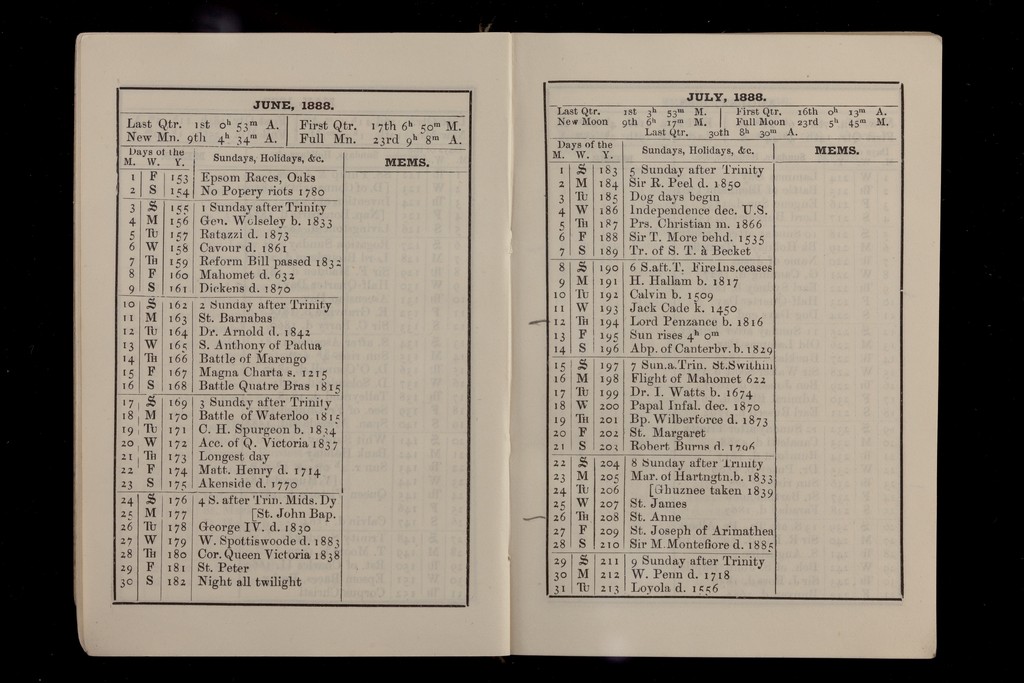 JUNE, 1888.
Last Qtr. 1st 0h 53m A. | First Qtr. 17th 6h 50m M.
New Mn. 9th 4h 34m A. | Full Mn. 23rd 9h 8m A.
Days of the
M. W. Y. Sundays, Holidays, &c. MEMS.
1 F 153 Epsom Races, Oaks
2 S 154 No Popery riots 1780
3 S 155 1 Sunday after Trinity
4 M 156 Gen. Wolseley b. 1833
5 Tu 157 Ratazzi d. 1873
6 W 158 Cavour d. 1861
7 Th 159 Reform Bill passed 1832
8 F 160 Mahomet d. 632
9 S 161 Dickens d. 1870
10 S 162 2 Sunday after Trinity
11 M 163 St. Barnabas
12 Tu 164 Dr. Arnold d. 1842
13 W 165 S. Anthony of Padua
14 Th 166 Battle of Marengo
15 F 167 Magna Charta s. 1215
16 S 168 Battle Quatre Bras 1815
17 S 169 3 Sunday after Trinity
18 M 170 Battle of Waterloo 1815
19 Tu 171 C. H. Spurgeon b. 1834
20 W 172 Acc. of Q. Victoria 1837
21 Th 173 Longest day
22 F 174 Matt. Henry d. 1714
23 S 175 Akenside d. 1770
24 S 176 4 S. after Trin. Mids. Dy
25 M 177 [St. John Bap.
26 Tu 178 George IV. d. 1830
27 W 179 W. Spottiswoode d. 1883
28 Th 180 Cor. Queen Victoria 1838
29 F 181 St. Peter
30 S 182 Night all twilight
JULY, 1888.
Last Qtr. 1st 3h 53m M. | First Qtr. 16th 0h 13m A.
New Moon 9th 6h 17m M. | Full Moon 23rd 5h 45m M.
Last Qtr. 30th 8h 30m A.
Days of the
M. W. Y. Sundays, Holidays, &c. MEMS.
1 S 183 5 Sunday after Trinity
2 M 184 Sir R. Peel d. 1850
3 Tu 185 Dog days begin
4 W 186 Independence dec. U.S.
5 Th 187 Prs. Christian m. 1866
6 F 188 Sir T. More behd. 1535
7 S 189 Tr. of S. T. à Becket
8 S 190 6 S.aft.T. FireIns.ceases
9 M 191 H. Hallam b. 1817
10 Tu 192 Calvin b. 1509
11 W 193 Jack Cade k. 1450
12 Th 194 Lord Penzance b. 1816
13 F 195 Sun rises 4h 0m
14 S 196 Abp. of Canterby. b. 1829
15 S 197 7 Sun.a.Trin. St.Swithin
16 M 198 Flight of Mahomet 622
17 Tu 199 Dr. I. Watts b. 1674
18 W 200 Papal Infal. dec. 1870
19 Th 201 Bp. Wilberforce d. 1873
20 F 202 St. Margaret
21 S 203 Robert Burns d. 1796
22 S 204 8 Sunday after Trinity
23 M 205 Mar. of Hartngtn.b. 1833
24 Tu 206 [Ghuznee taken 1839
25 W 207 St. James
26 Th 208 St. Anne
27 F 209 St. Joseph of Arimathea
28 S 210 Sir M.Montefiore d. 1885
29 S 211 9 Sunday after Trinity
30 M 212 W. Penn d. 1718
31 Tu 213 Loyola d. 1556